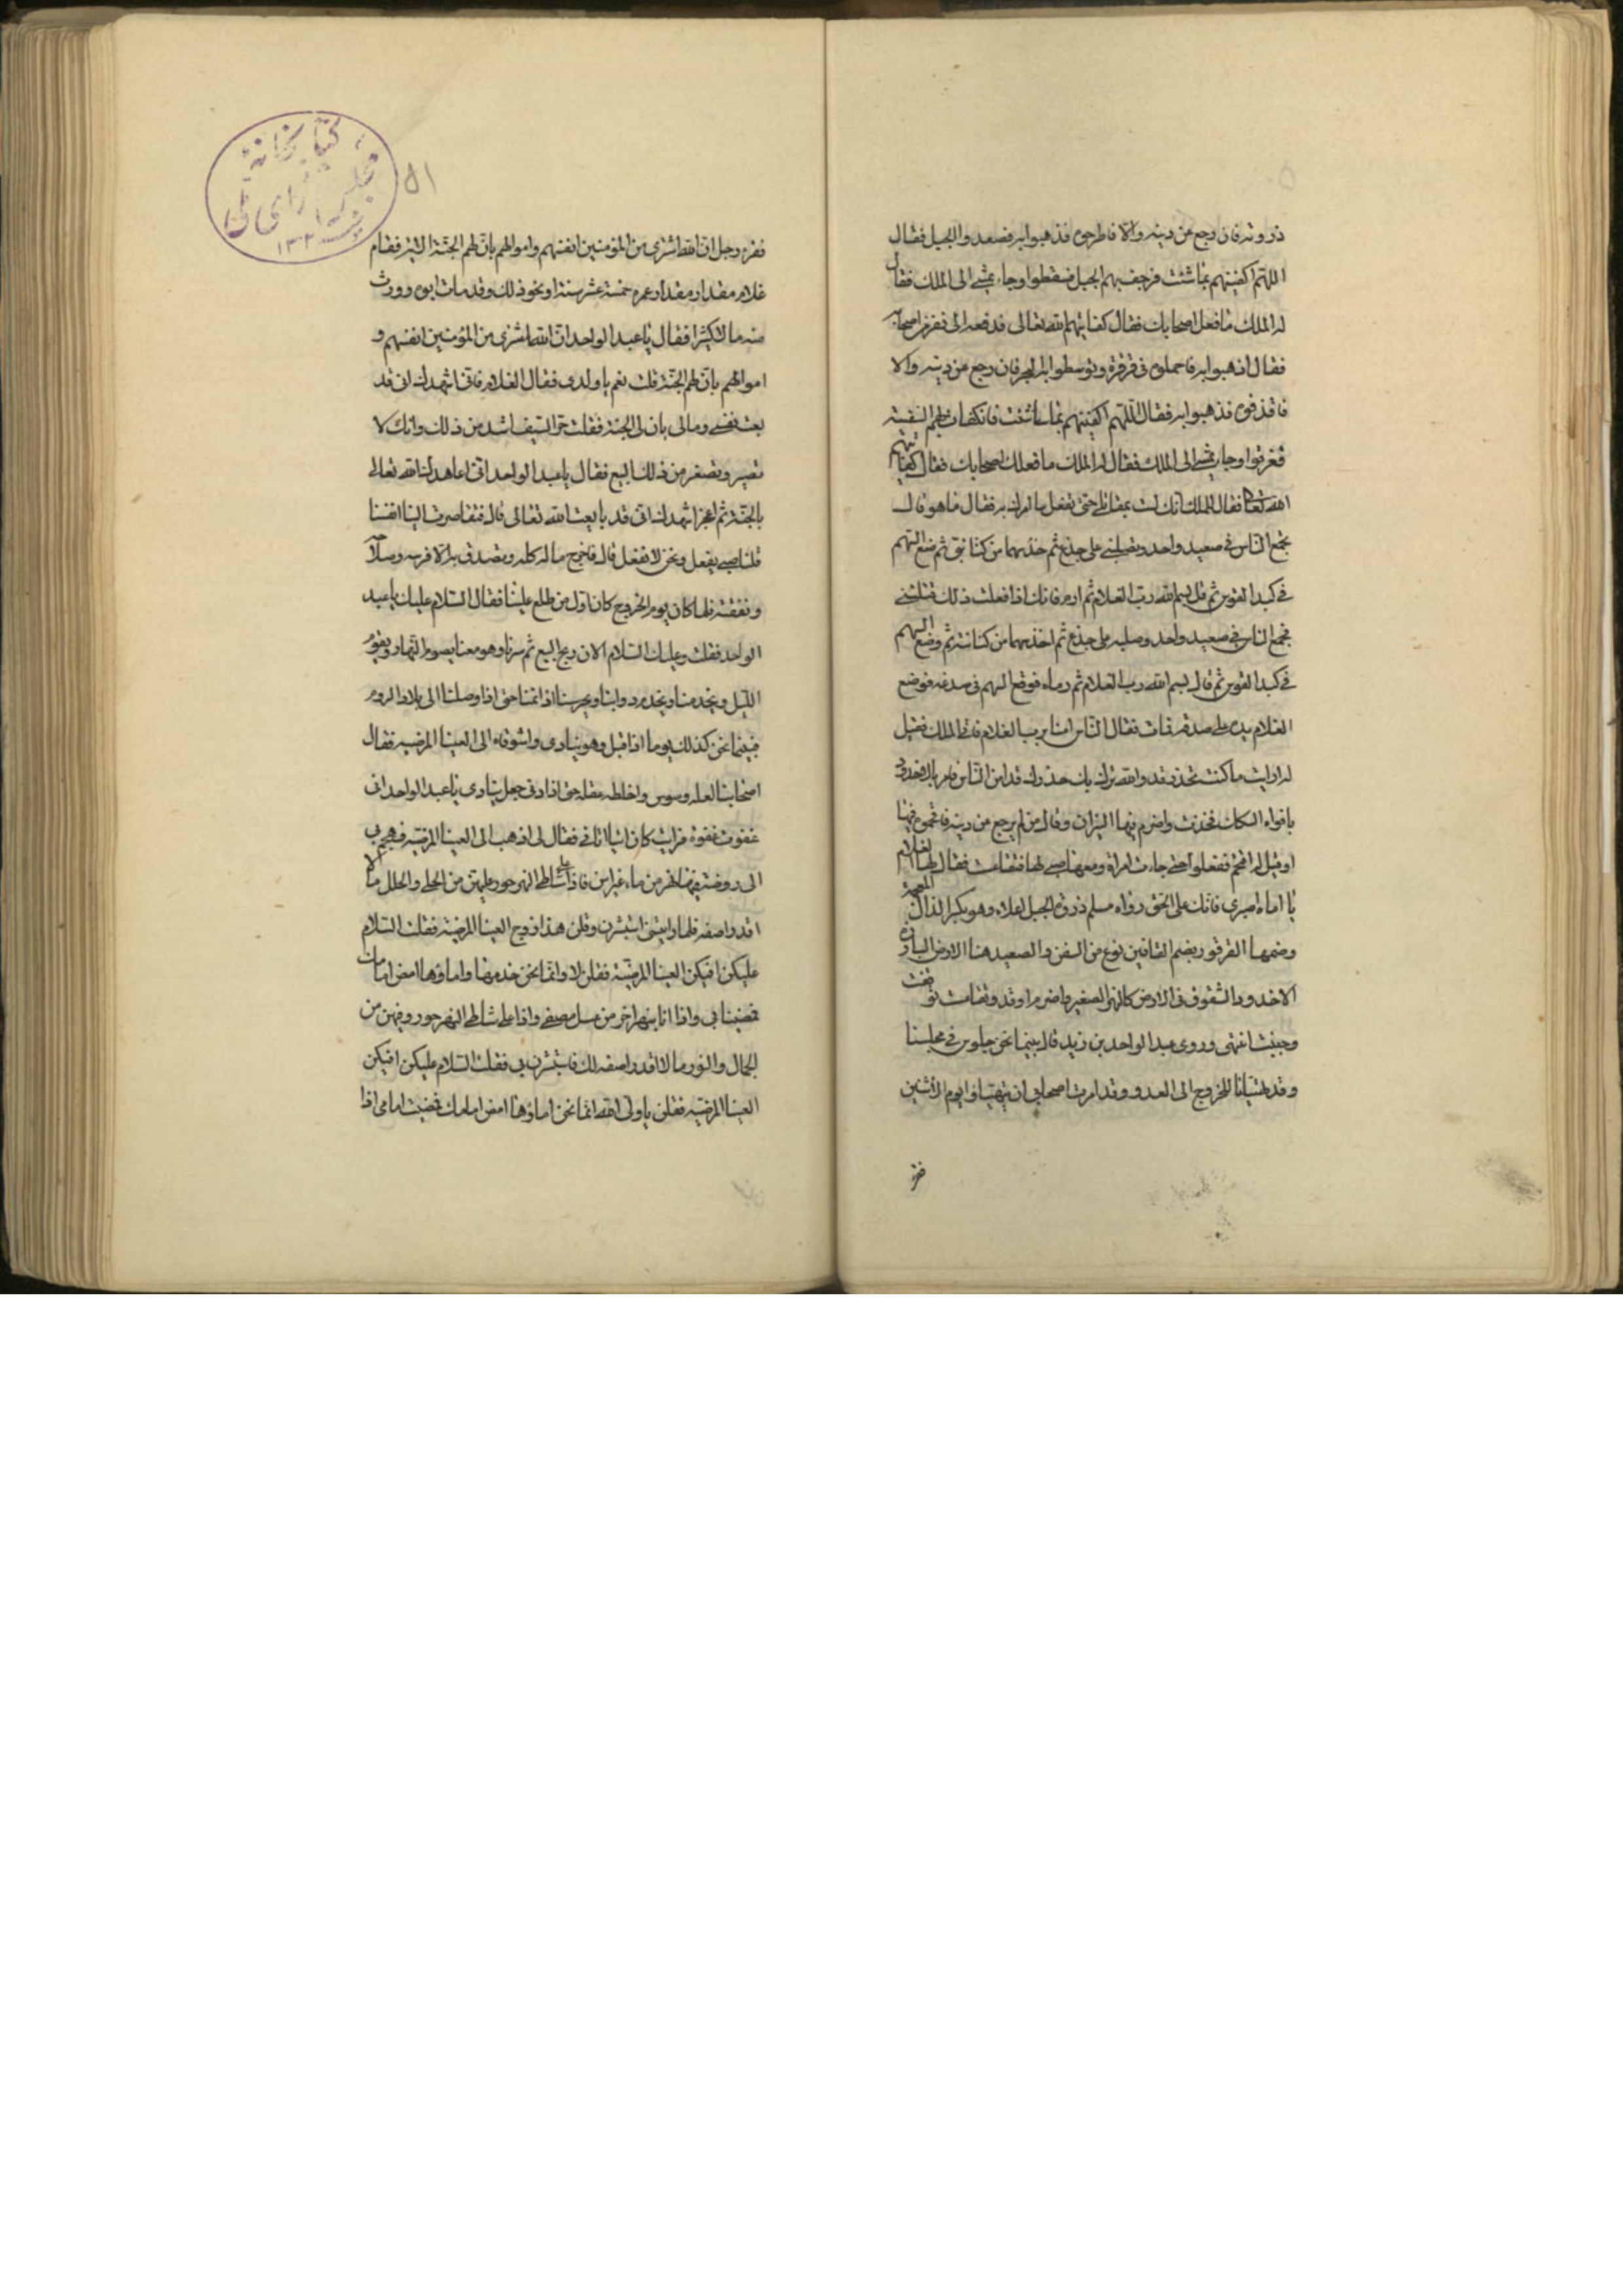 ذروته فان رجع عن دينه والا فاطرحوه فذهبوا به فصعدوا الجبل فقال
اللهم اكفنيهم بما شئت فرجف بهم الجبل فسقطوا وجاء يمشي الى الملك فقال
له الملك ما فعل اصحابك فقال كفانيهم الله تعالى فدفعه الى نفر من اصحابه
فقال اذهبوا به فاحملوه في قرقرة وتوسطوا به البحر فان رجع عن دينه والا
فاقذفوه فذهبوا به فقال اللهم اكفنيهم بما شئت فانكفات بهم السفينة
فغرقوا وجاء يمشي الى الملك فقال له الملك ما فعلك اصحابك فقال كفانيهم
الله تعالى فقال للملك انك لست بقاتلي حتى تفعل ما امرك به فقال ما هو قال
تجمع الناس في صعيد واحد وتصلبني على جذع ثم خذ سهما من كنانتي ثم ضع السهم
في كبد القوس ثم قل بسم الله رب الغلام ثم ارم فانك اذا فعلت ذلك قتلتني
فجمع الناس في صعيد واحد وصلبه على جذع ثم اخذ سهما من كنانته ثم وضع السهم
في كبد القوس ثم قال بسم الله رب الغلام ثم رماه فوقع السهم في صدغه فوضع
الغلام يده على صدغه فمات فقال الناس امنا برب الغلام فاتى الملك فقيل
له ارايت ما كنت تحذر قد والله نزل بك حذرك قد امن الناس فامر بالاخدود
بافواه السكك فخدت واضرم فيها النيران وقال من لم يرجع عن دينه فاقحموه فيها
او قيل له اقتحم ففعلوا حتى جاءت امراة ومعها صبي لها فتقاعست فقال لها الغلام
يا اماه اصبري فانك على الحق رواه مسلم ذروة الجبل اعلاه وهو بكسر الذال المعجمة
وضمها القرقور بضم القافين نوع من السفن والصعيد هنا الارض البارزة
الاخدود الشقوق في الارض كالنهر الصغير واضرم اوقد وتقاعست توقفت
وجبنت انتهى وروى عبد الواحد بن زيد قال بينما نحن جلوس في مجلسنا
وقد تهيانا للخروج الى العدو وقد امرت اصحابي ان يتهياوا يوم الاثنين
فقر
۵۱
كتابخانه
مجلس شورای ملی
فقرء رجل ان الله اشترى من المؤمنين انفسهم واموالهم بان لهم الجنة الاية فقام
غلام مقدار مقدار عمره خمسة عشر سنة او نحو ذلك وقد مات ابوه وورث
منه مالا كثيرا فقال يا عبد الواحد ان الله اشترى من المؤمنين انفسهم و
اموالهم بان لهم الجنة قلت نعم يا ولدي فقال الغلام فاني اشهدك اني قد
بعت نفسي ومالي بان لي الجنة فقلت حر السيف اشد من ذلك وانك لا
تصبر وتصغر من ذلك البيع فقال يا عبد الواحد اني اعاهد لنا الله تعالى
بالجنة ثم اعجز اشهدك اني قد بايعت الله تعالى قال فتقاصرت الينا انفسنا
قلنا صبي يفعل ونحن لا نفعل قال فاخرج ماله كله وتصدق به الا فرسه وسلاحه
ونفقته فلما كان يوم الخروج كان اول من طلع علينا فقال السلام عليك يا عبد
الواحد فقلت وعليك السلام الان ربح البيع ثم سرنا وهو معنا يصوم النهار ويقوم
الليل ويخدمنا ويخدم دوابنا ويحرسنا اذا نمنا حتى اذا وصلنا الى بلاد الروم
فبينما نحن كذلك يوما اذ اقبل وهو ينادي واشوقاه الى العينا المرضيه فقال
اصحابنا لعله وسوس واختلط عقله حتى اذا دنى جعل ينادي يا عبد الواحد اني
غفوت غفوة فرايت كان اتيا اتاني فقال لي اذهب الى العينا المرضيه فهجم بي
الى روضة فيها نهر من ماء غير اسن فاذا على شاطي النهر حور عليهن من الحلي والحلل ما لا
اقدر اصفه فلما رايتني استبشرن وقلن هذا زوج العينا المرضية فقلت السلام
عليكن افيكن العينا المرضية فقلن لا وانما نحن خدمها واماؤها امض امامك
فمضيت اني واذا انا بنهر اخر من عسل مصفى واذا على شاطي النهر حور وفيهن من
الجمال والنور ما لا اقدر اصفه لك فاستبشرن بي فقلت السلام عليكن افيكن
العينا المرضيه فقلن يا ولي الله انما نحن اماؤها امض امامك فمضيت امامي اذا